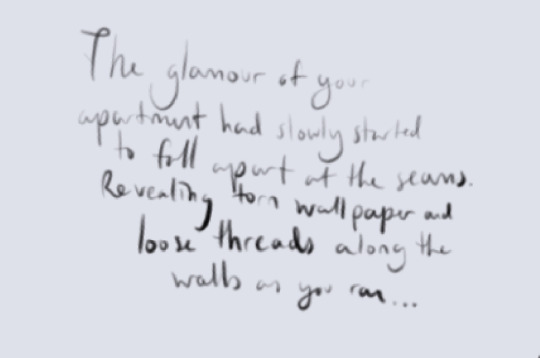 The glamour of your
apartment had slowly started
to fall apart at the seams.
Revealing torn wallpaper and
loose threads along the
walls as you ran...